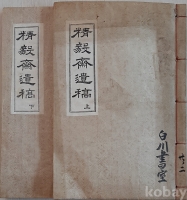 精毅齋遺稿 上
精毅齋遺稿 下
白川書室
共二
kobay